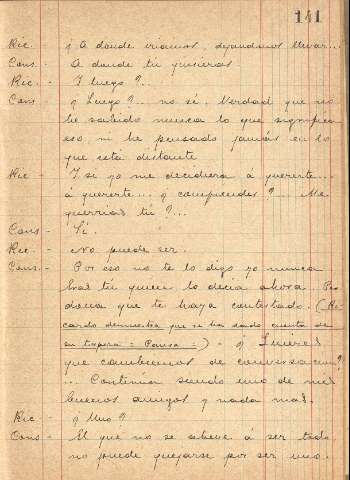 141
Ric.- ¿A donde iriamos, dejandonos llevar...
Cons.- A donde tú quisieras
Ric.- Y luego?...
Cons.- ¿Luego?.. no sé. Verdad que no
he sabido nunca lo que significa
eso, ni he pensado jamás en lo
que está distante
Ric- Y si yo me decidiera á quererte...
á quererte... ¿comprendes? Me
querrias tú?...
Cons- Si.
Ric.- No puede ser.
Cons.- Por eso no te lo digo yo nunca
has tú quien lo decia ahora. Per
dona que te haya contestado. (Ri-
cardo demuestra que se ha dado cuenta de
su = Pausa =) - ¿Quieres
que cambiemos de conversacion?
... Continúa siendo uno de mis
buenos amigos y nada mas.
Ric- ¿Uno?
Cons- El que no se atreve á ser todo
no puede quejarse por ser uno.